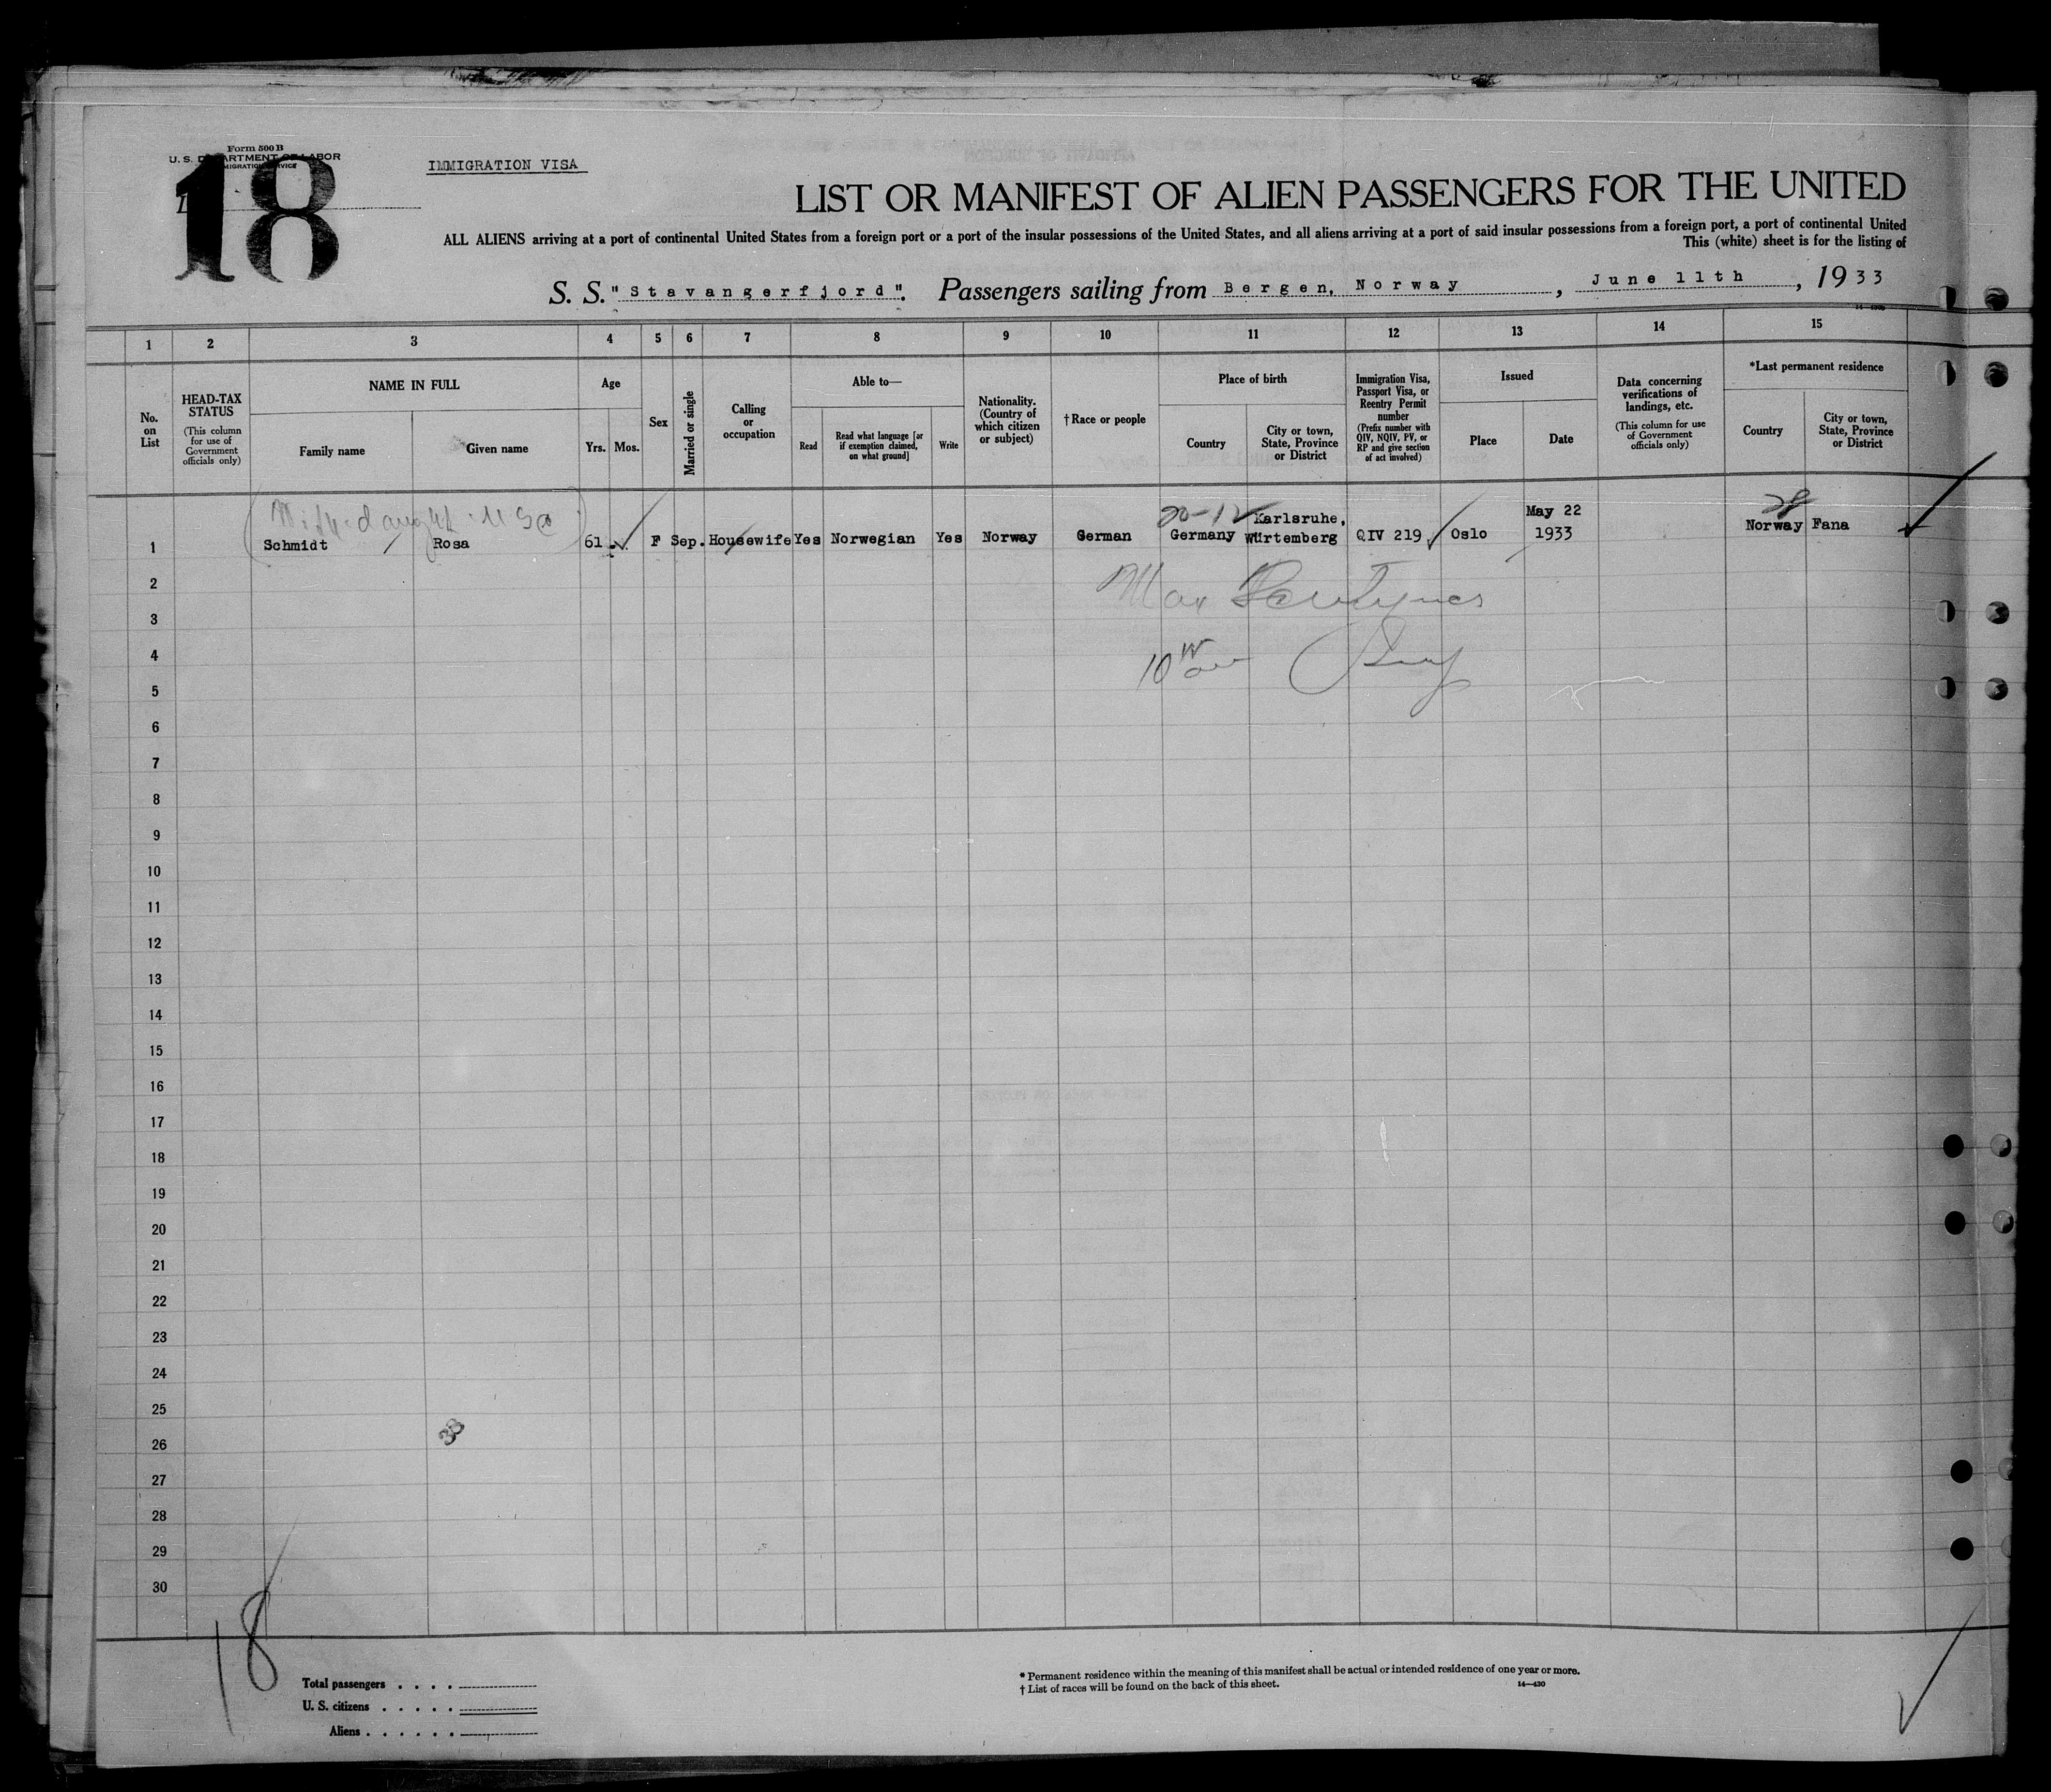 Form 500 B
U. S. DEPARTMENT OF LABOR
IMMIGRATION SERVICE
18
IMMIGRATION VISA
LIST OR MANIFEST OF ALIEN PASSENGERS FOR THE UNITED
ALL ALIENS arriving at a port of continental United States from a foreign port or a port of the insular possessions of the United States, and all aliens arriving at a port of said insular possessions from a foreign port, a port of continental United
This (white) sheet is for the listing of
S. S. "Stavangerfjord". Passengers sailing from Bergen, Norway, June 11th, 1933
1 2 3 4 5 6 7 8 9 10 11 12 13 14 15
No. on List
HEAD-TAX STATUS (This column for use of Government officials only)
NAME IN FULL
Family name Given name
Age
Yrs. Mos.
Sex
Married or single
Calling or occupation
Able to—
Read
Read what language [or if exemption claimed, on what ground]
Write
Nationality. (Country of which citizen or subject)
†Race or people
Place of birth
Country
City or town, State, Province or District
Immigration Visa, Passport Visa, or Reentry Permit number (Prefix number with QIV, NQIV, PV, or RP and give section of act involved)
Issued
Place Date
Data concerning verifications of landings, etc. (This column for use of Government officials only)
*Last permanent residence
Country
City or town, State, Province or District
20-12 Karlsruhe, May 22 28
1 Schmidt Rosa 61 F Sep. Housewife Yes Norwegian Yes Norway German Germany Würtemberg QIV 219 Oslo 1933 Norway Fana
2
3
4
5
6
7
8
9
10
11
12
13
14
15
16
17
18
19
20
21
22
23
24
25
26
27
28
29
30
18
Total passengers . . . .
U. S. citizens . . . . .
Aliens . . . . . .
* Permanent residence within the meaning of this manifest shall be actual or intended residence of one year or more.
† List of races will be found on the back of this sheet.
14—430